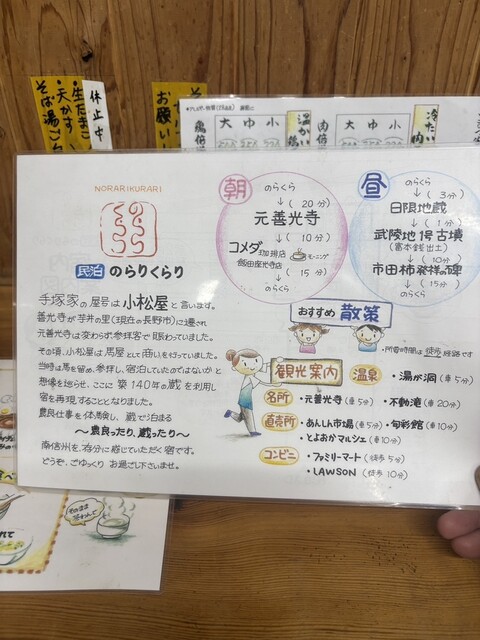 ・生たまご
・天かす
そば湯ご
休止中
お願い
大 中 小
温かい
大 中 小
冷たい
NORARIKURARI
民泊 のらりくらり
手塚家の屋号は小松屋と言います。
善光寺が芋井の里(現在の長野市)に遷され
元善光寺は変わらず参拝客で賑わっていました。
その頃、小松屋は馬屋として商いを行っていました。
当時は馬を留め、参拝し、宿泊していたのではないかと
想像を巡らせ、ここに築140年の蔵を利用し
宿を再現することとなりました。
農良仕事を体験し、蔵で泊まる
～農良ったり、蔵ったり～
南信州を、存分に感じていただく宿です。
どうぞ、ごゆっくりお過ごし下さいませ。
朝
のらくら
↓(20分)
元善光寺
↓(10分)
コメダ珈琲店
飯田座光寺店
モーニング
↓(15分)
のらくら
昼
のらくら
↓(3分)
日限地蔵
↓(1分)
武陵地1号古墳
(富本銭出土)
↓(10分)
市田柿発祥の碑
↓(15分)
のらくら
おすすめ 散策
・所要時間は徒歩経路です
観光案内
名所
・元善光寺(車5分)
・不動滝(車20分)
温泉
・湯が洞(車5分)
直売所
・あんしん市場(車5分)
・旬彩館(車10分)
・とよおかマルシェ(車10分)
コンビニ
・ファミリーマート(徒歩5分)
・LAWSON(徒歩10分)